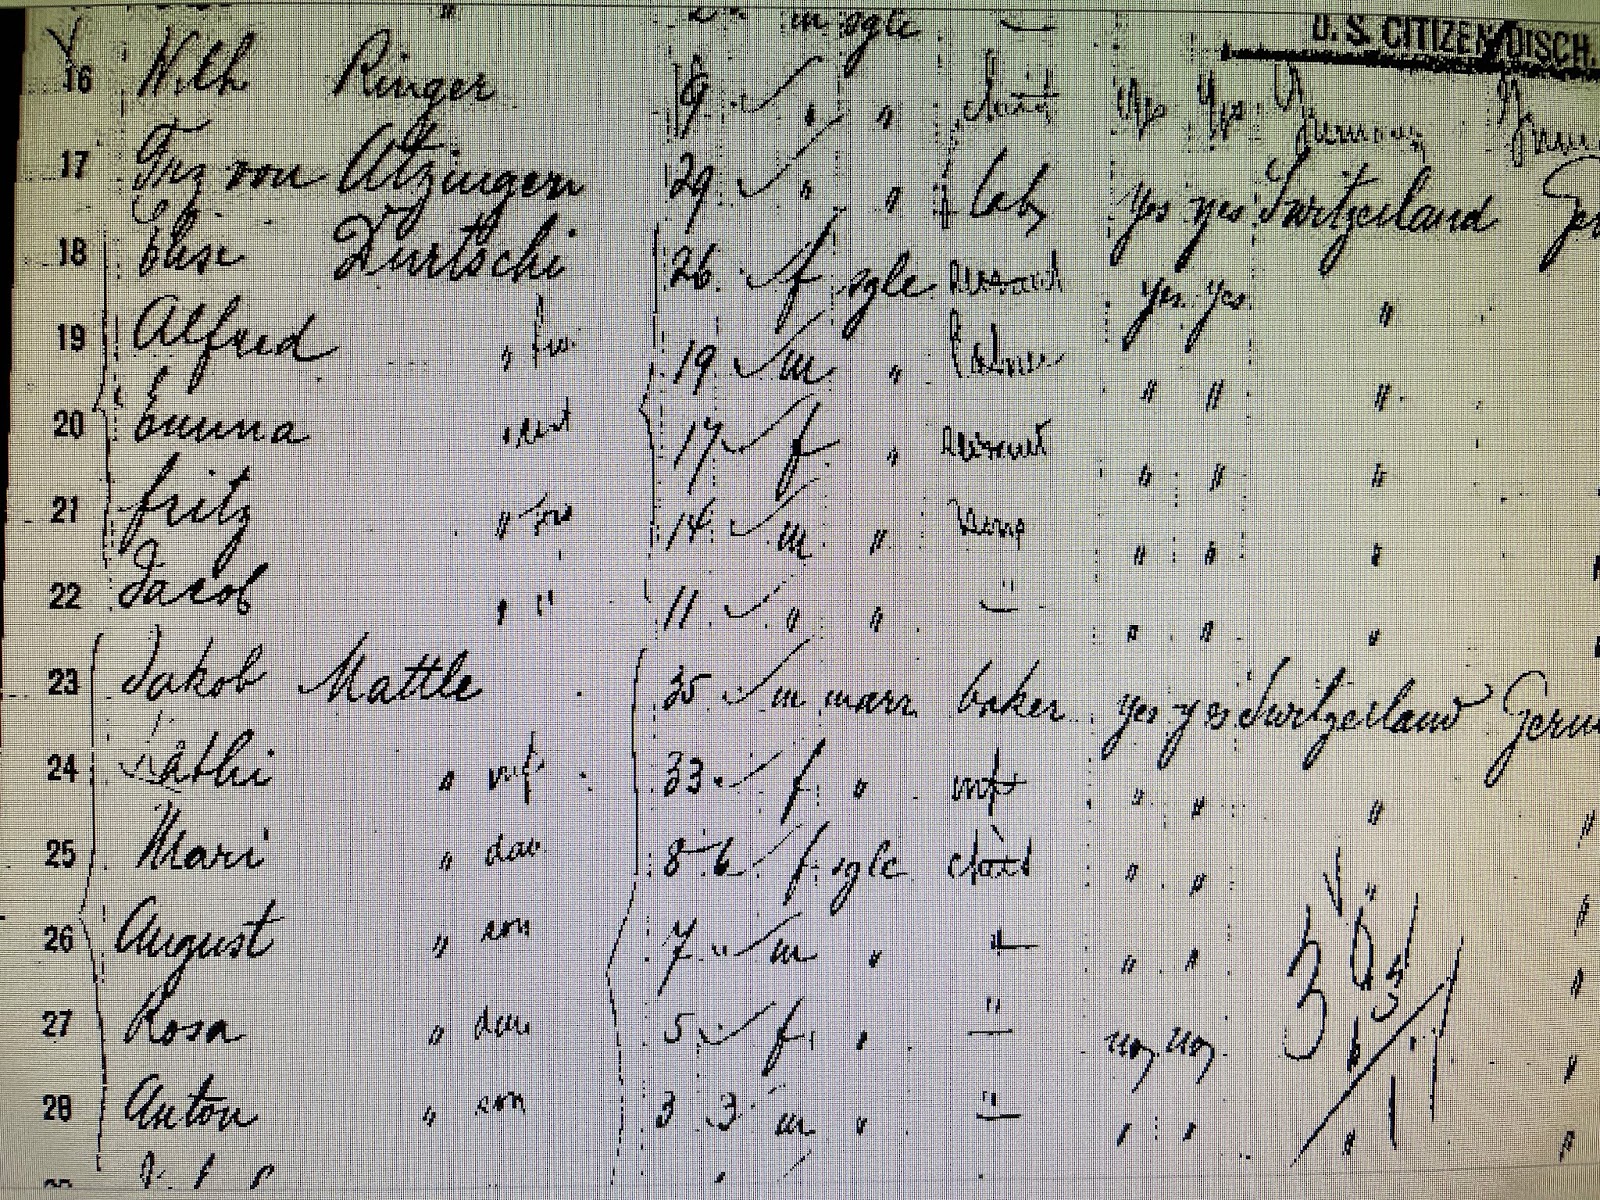 m sgle
U. S. CITIZEN DISCH.
16 Wilh Ringer 9 " " child yes yes Germany
17 Frz von Atzingen 29 " " lab yes yes Switzerland Ger
18 Elise Dürtschi 26 f sgle servant yes yes "
19 Alfred " 19 m " " " "
20 Emma " 17 f " servant " " "
21 Fritz " 14 m " " " "
22 Jacob " " 11 " " " " " "
23 Jakob Mattle 35 m marr baker yes yes Switzerland Germ
24 Käthi " wf 33 f " wf " " " "
25 Mari " dau 8 6 f sgle child " " " "
26 August " son 7 m " " " "
27 Rosa " dau 5 f " " no no "
28 Anton " son 3 3 m " " " " " "